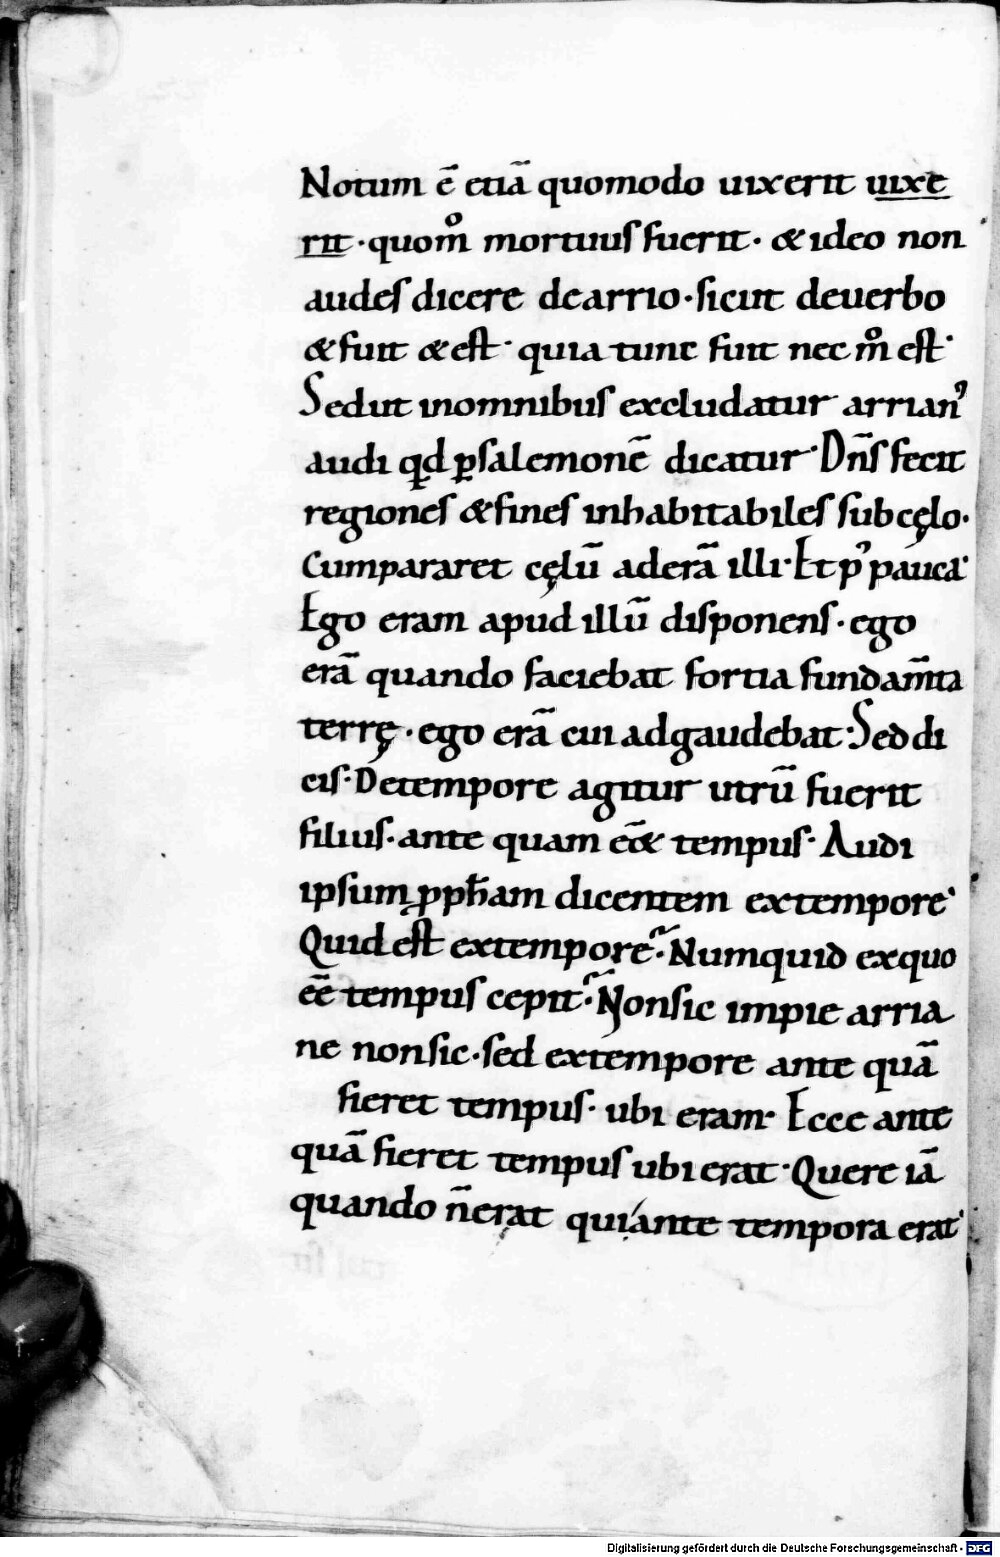 Notum ē etiā quomodo uixerit uixe
rit · quom̊ mortuus fuerit · & ideo non
audes dicere dearrio · sicut deuerbo
& fuit & est · quia tunc fuit nec m̊ est ·
Sedut inomnibus excludatur arrianꝰ
audi qd ꝑsalemonē dicatur · Dn̄s fecit
regiones & fines inhabitabiles subcęlo ·
Cumpararet cęlū aderā illi · Et pꝰ pauca ·
Ego eram apud illū disponens · ego
erā quando faciebat fortia fundam̄ta
terrę · ego erā cui adgaudebat · Sed di
cis · Detempore agitur utrū fuerit
filius · ante quam eē& tempus · Audi
ipsum ꝓpħam dicentem extempore ·
Quid est extempore · Numquid exquo
eē tempus cepit · Nonsic impie arria
ne nonsic · sed extempore ante quā
fieret tempus · ubi eram · Ecce ante
quā fieret tempus ubi erat · Quere iā
quando n̄ erat qui ante tempora erat ·
Digitalisierung gefördert durch die Deutsche Forschungsgemeinschaft - DFG